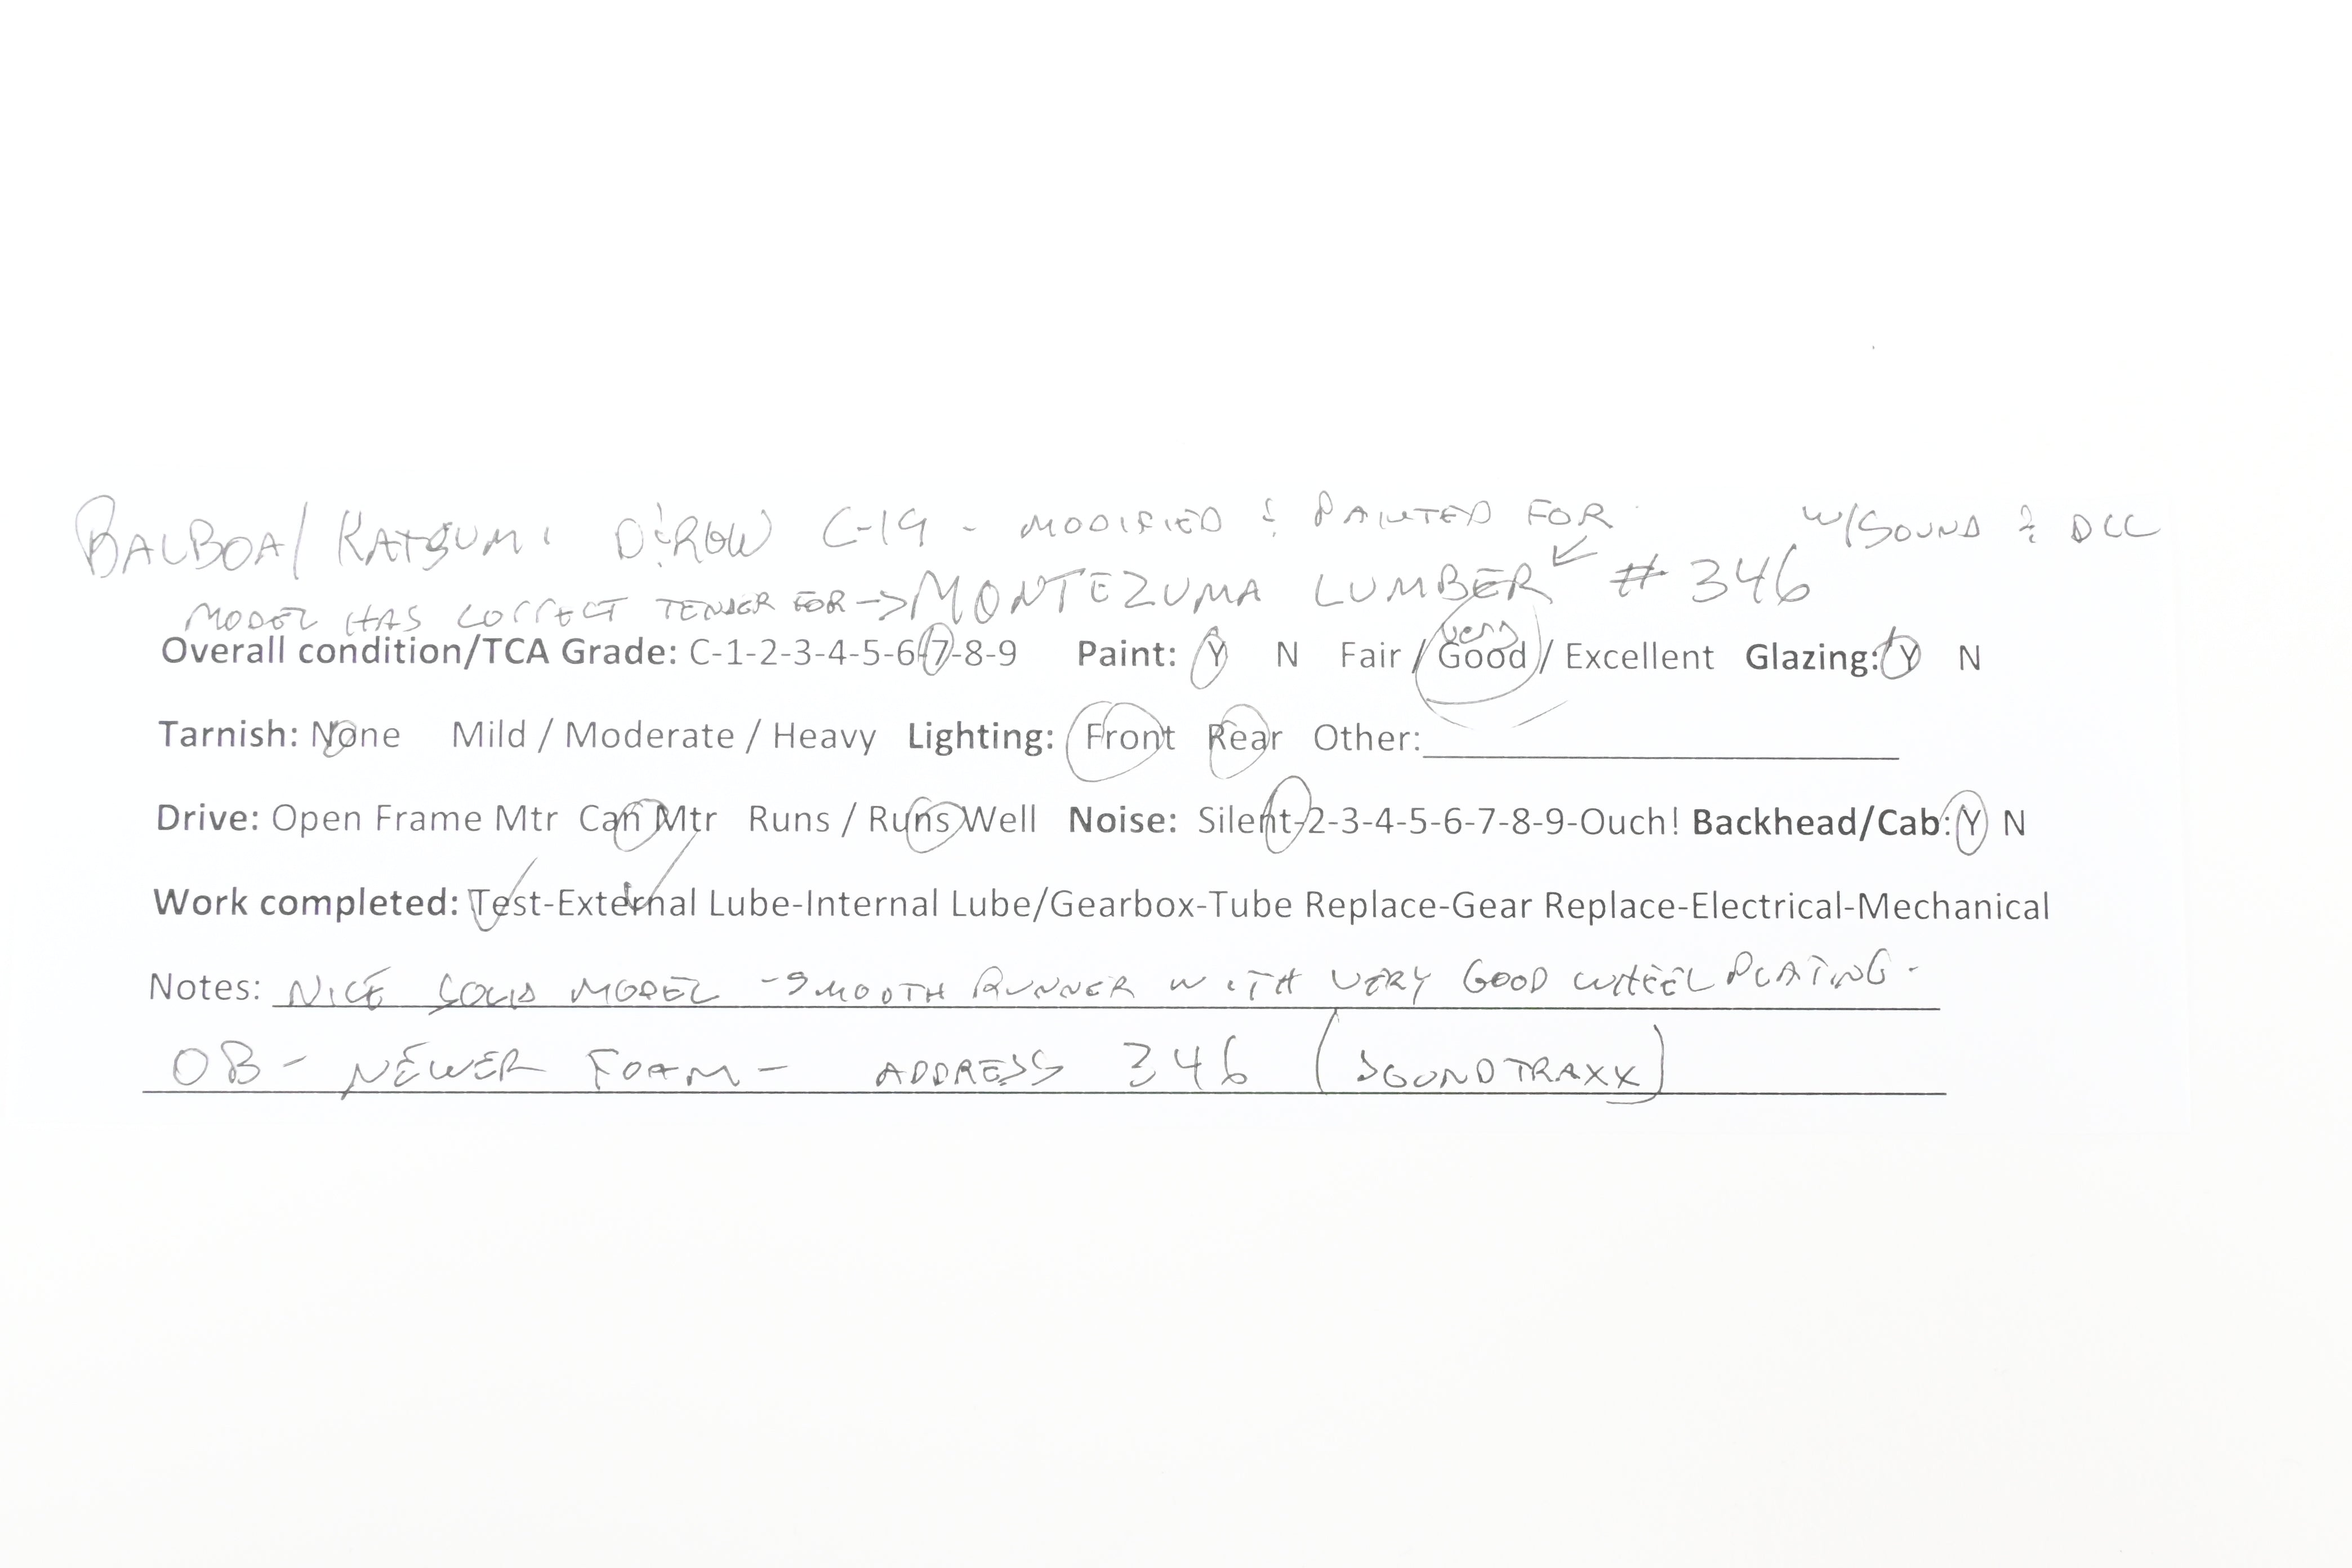 BALBOA/KATSUMI D&RGW C-19 - MODIFIED & PAINTED FOR W/SOUND & DCC
MODEL HAS CORRECT TENDER FOR -> MONTEZUMA LUMBER # 346
Overall condition/TCA Grade: C-1-2-3-4-5-6-7-8-9 Paint: Y N Fair / very Good / Excellent Glazing: Y N
Tarnish: None Mild / Moderate / Heavy Lighting: Front Rear Other:
Drive: Open Frame Mtr Can Mtr Runs / Runs Well Noise: Silent-2-3-4-5-6-7-8-9-Ouch! Backhead/Cab: Y N
Work completed: Test-External Lube-Internal Lube/Gearbox-Tube Replace-Gear Replace-Electrical-Mechanical
Notes: NICE SOLID MODEL - SMOOTH RUNNER WITH VERY GOOD WHEEL PLATING.
OB - NEWER FOAM - ADDRESS 346 (SOUNDTRAXX)